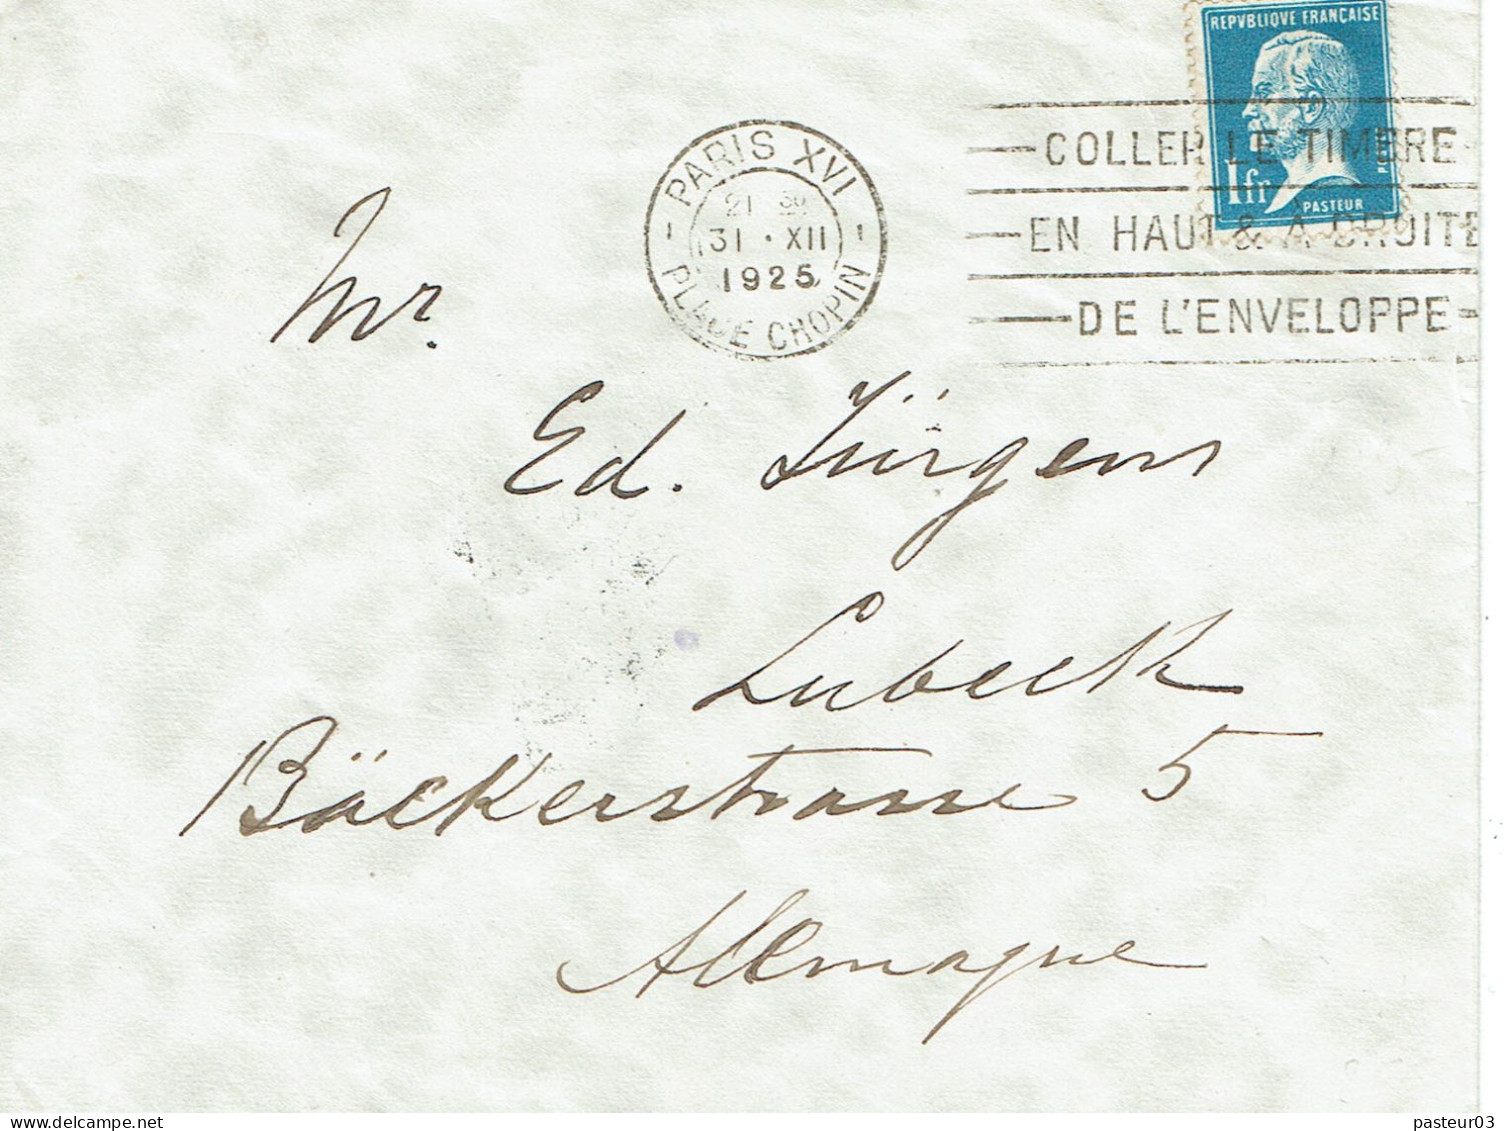 REPVBLIQVE FRANÇAISE
1fr
PASTEUR
PARIS XVI
21 30
31 · XII
1925
PLACE CHOPIN
COLLER LE TIMBRE
EN HAUT & A DROITE
DE L'ENVELOPPE
Mr.
Ed. Jürgens
Lubeck
Bäckerstrasse 5
Allemagne
pasteur03